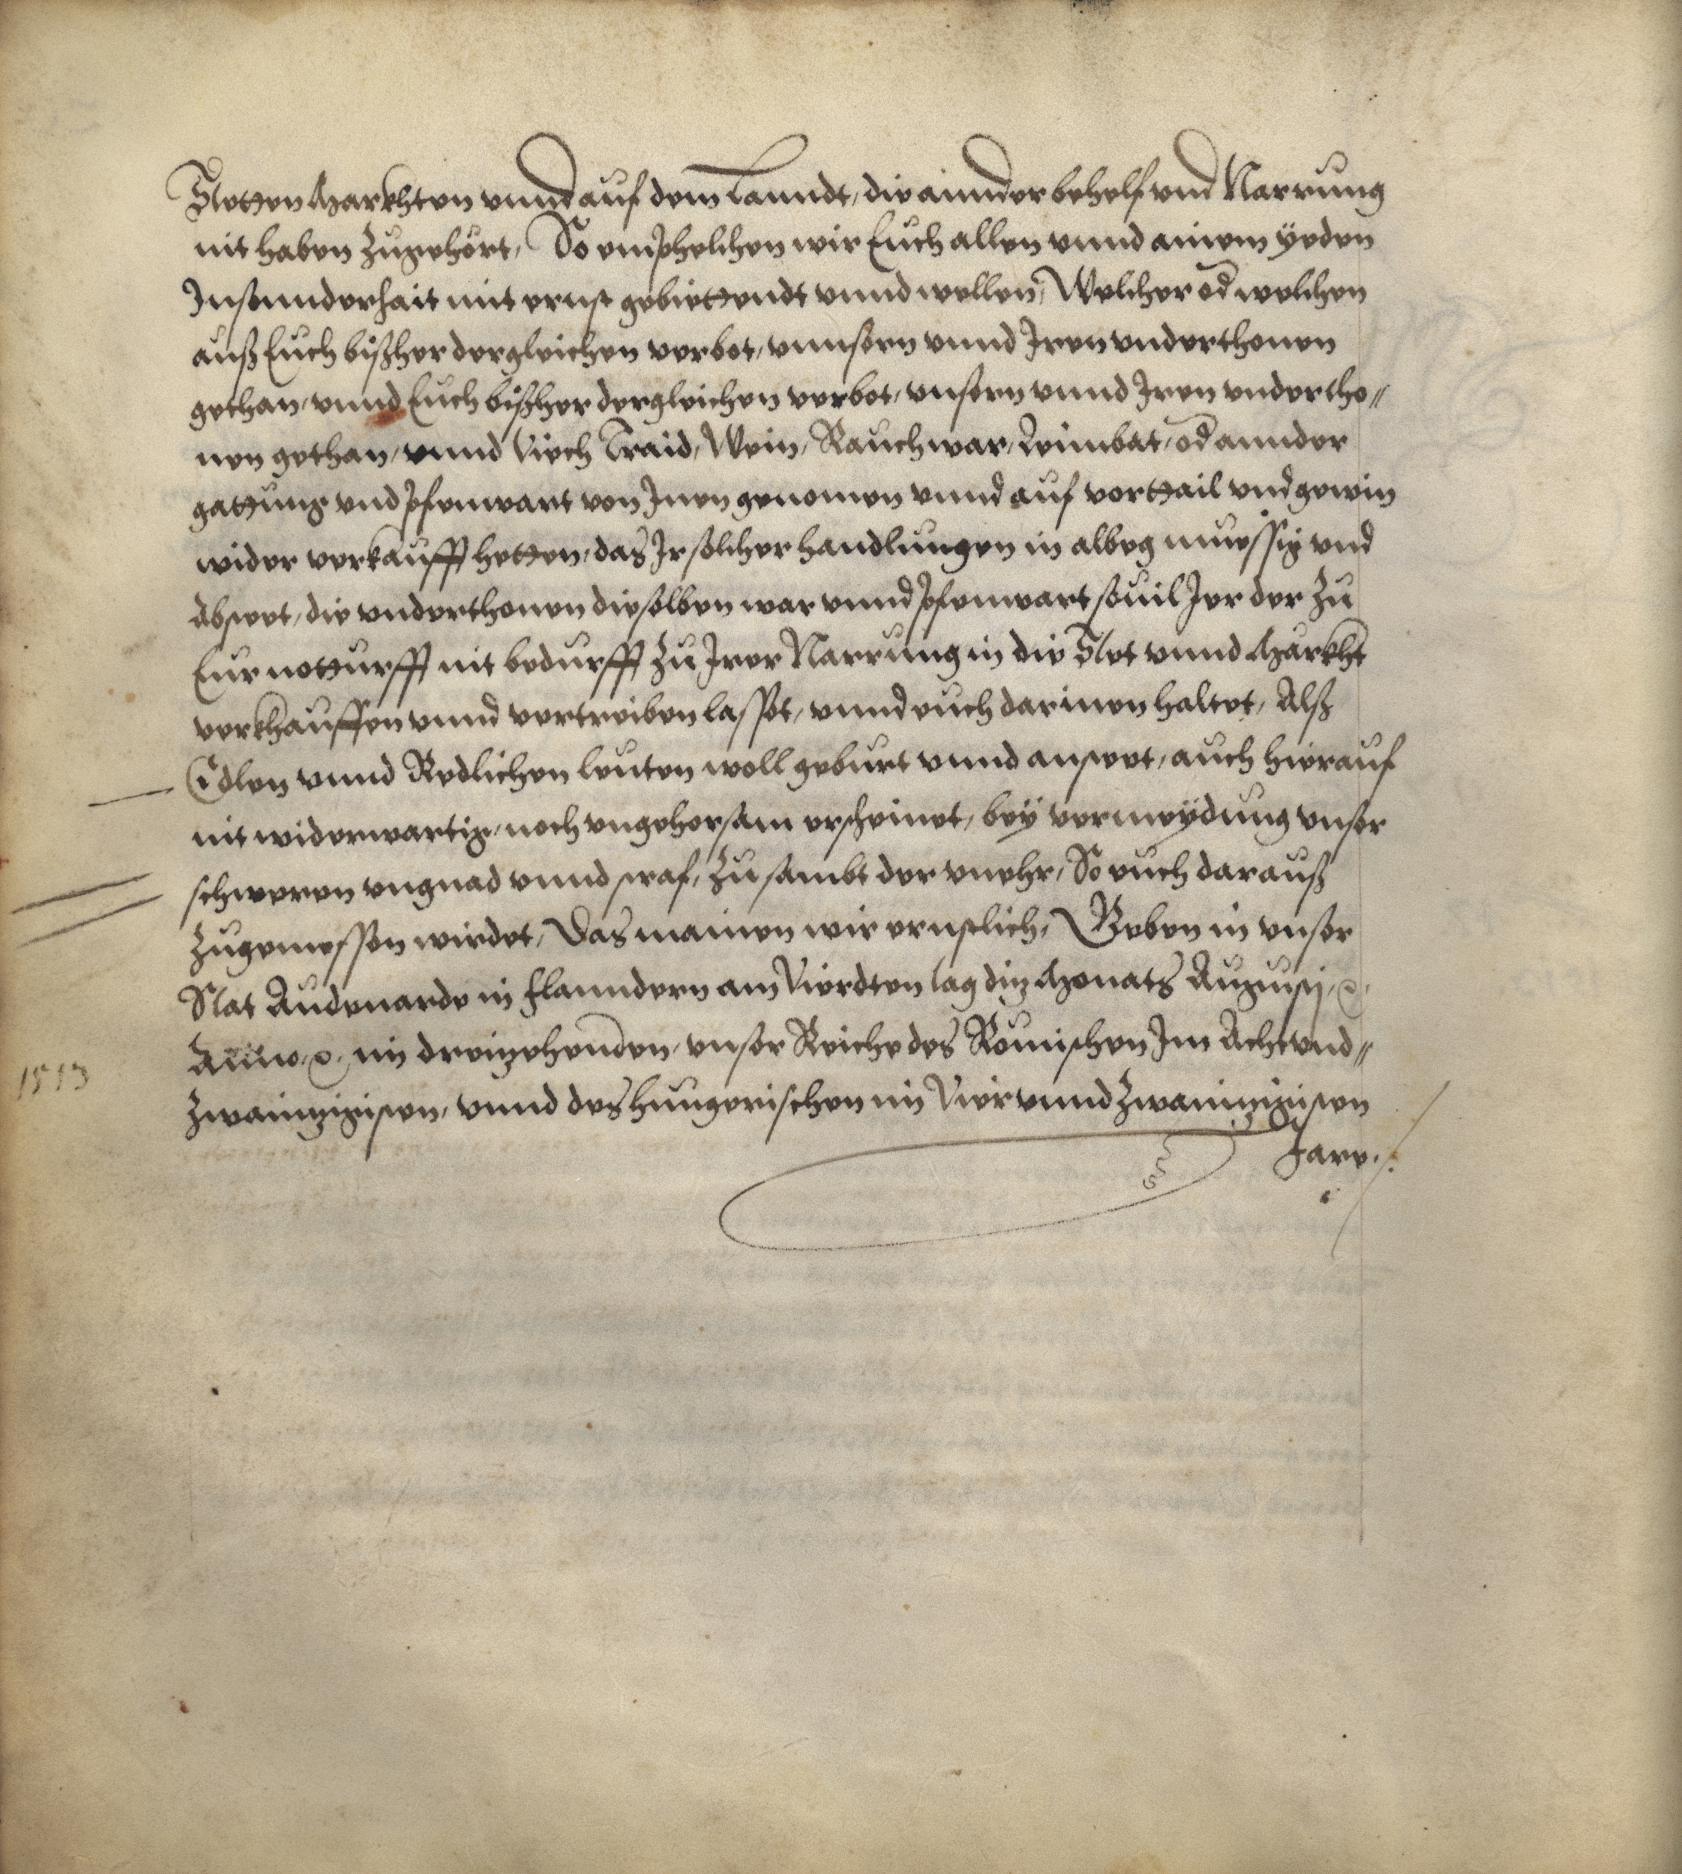 Stetten Markhten vnnd auf dem Lanndt, die annder behelf vnd Narrung
nit haben zugehört, So emphelchen wir Euch allen vnnd ainem yeden
Insonnderhait mit ernst gebiettendt vnnd wellen, Welcher od welchen
auß Euch bißher dergleichen verbot, vnnsern vnnd Iren vnderthonen
gethan, vnnd Euch bißher dergleichen verbot, vnsern vnnd Iren vndertho,,
nen gethan, vnnd Viech Traid, Wein, Rauchwar, Leimbat, od annder
gattung vnd pfenwart von Inen genomen vnnd auf vorttail vnd gewin
wider verkaufft hetten, das Ir solcher handlungen in albeg muessig vnd
absteet, die vnderthonen dieselben war vnnd pfenwart souil Jer der zu
Eur notturfft nit bedurfft zu Irer Narrung in die Stet vnnd Märkht
verkhauffen vnnd vertreiben lasset, vnnd euch darinnen haltet, Alß
Edlen vnnd Redlichen leuten woll geburt vnnd ansteet, auch hierauf
nit widerwärtig, noch vngehorsam erscheinet, bey vermeydung vnser
schweren vngnad vnnd straf, zu sambt der vnehr, So euch darauß
zugemessen wirdet, Das mainen wir ernstlich, Geben in vnser
Stat Audenarde in Flanndern am Vierdten tag diz Monats Augusti, &.
Anno. &. im dreizehenden, vnser Reiche des Römischen Im Achtvnd,,
1513
zwainzigisten, vnnd des hungerischen im Vier vnnd zwainzigisten
Jare.